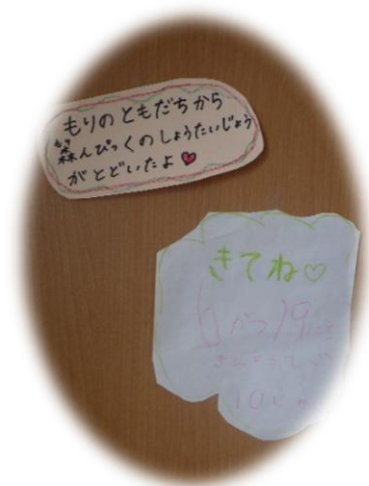 もりのともだちから
森んぴっくのしょうたいじょう
がとどいたよ♥
きてね♡
6がつ19にち